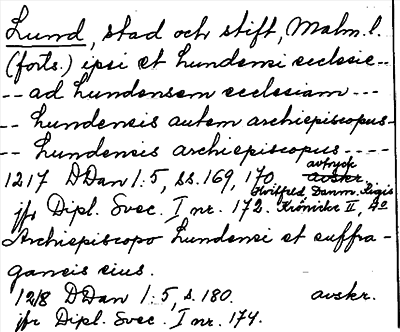 Lund, stad och stift, Malm. l.
(forts.) ipsi et Lundensi ecclesie --
-- ad Lundensem ecclesiam ---
-- Lundensis autem archiepiscopus -
-- Lundensis archiepiscopus -----
avtryck
1217 DDan 1:5, ss. 169, 170. avskr.
Hvitfeld Danm. Rigis
jfr Dipl. Svec. I nr. 172. Krönicke II, 40
Archiepiscopo Lundensi et suffra-
ganeis eius.
1218 DDan 1:5, s. 180. avskr.
jfr Dipl. Svec. I nr. 174.